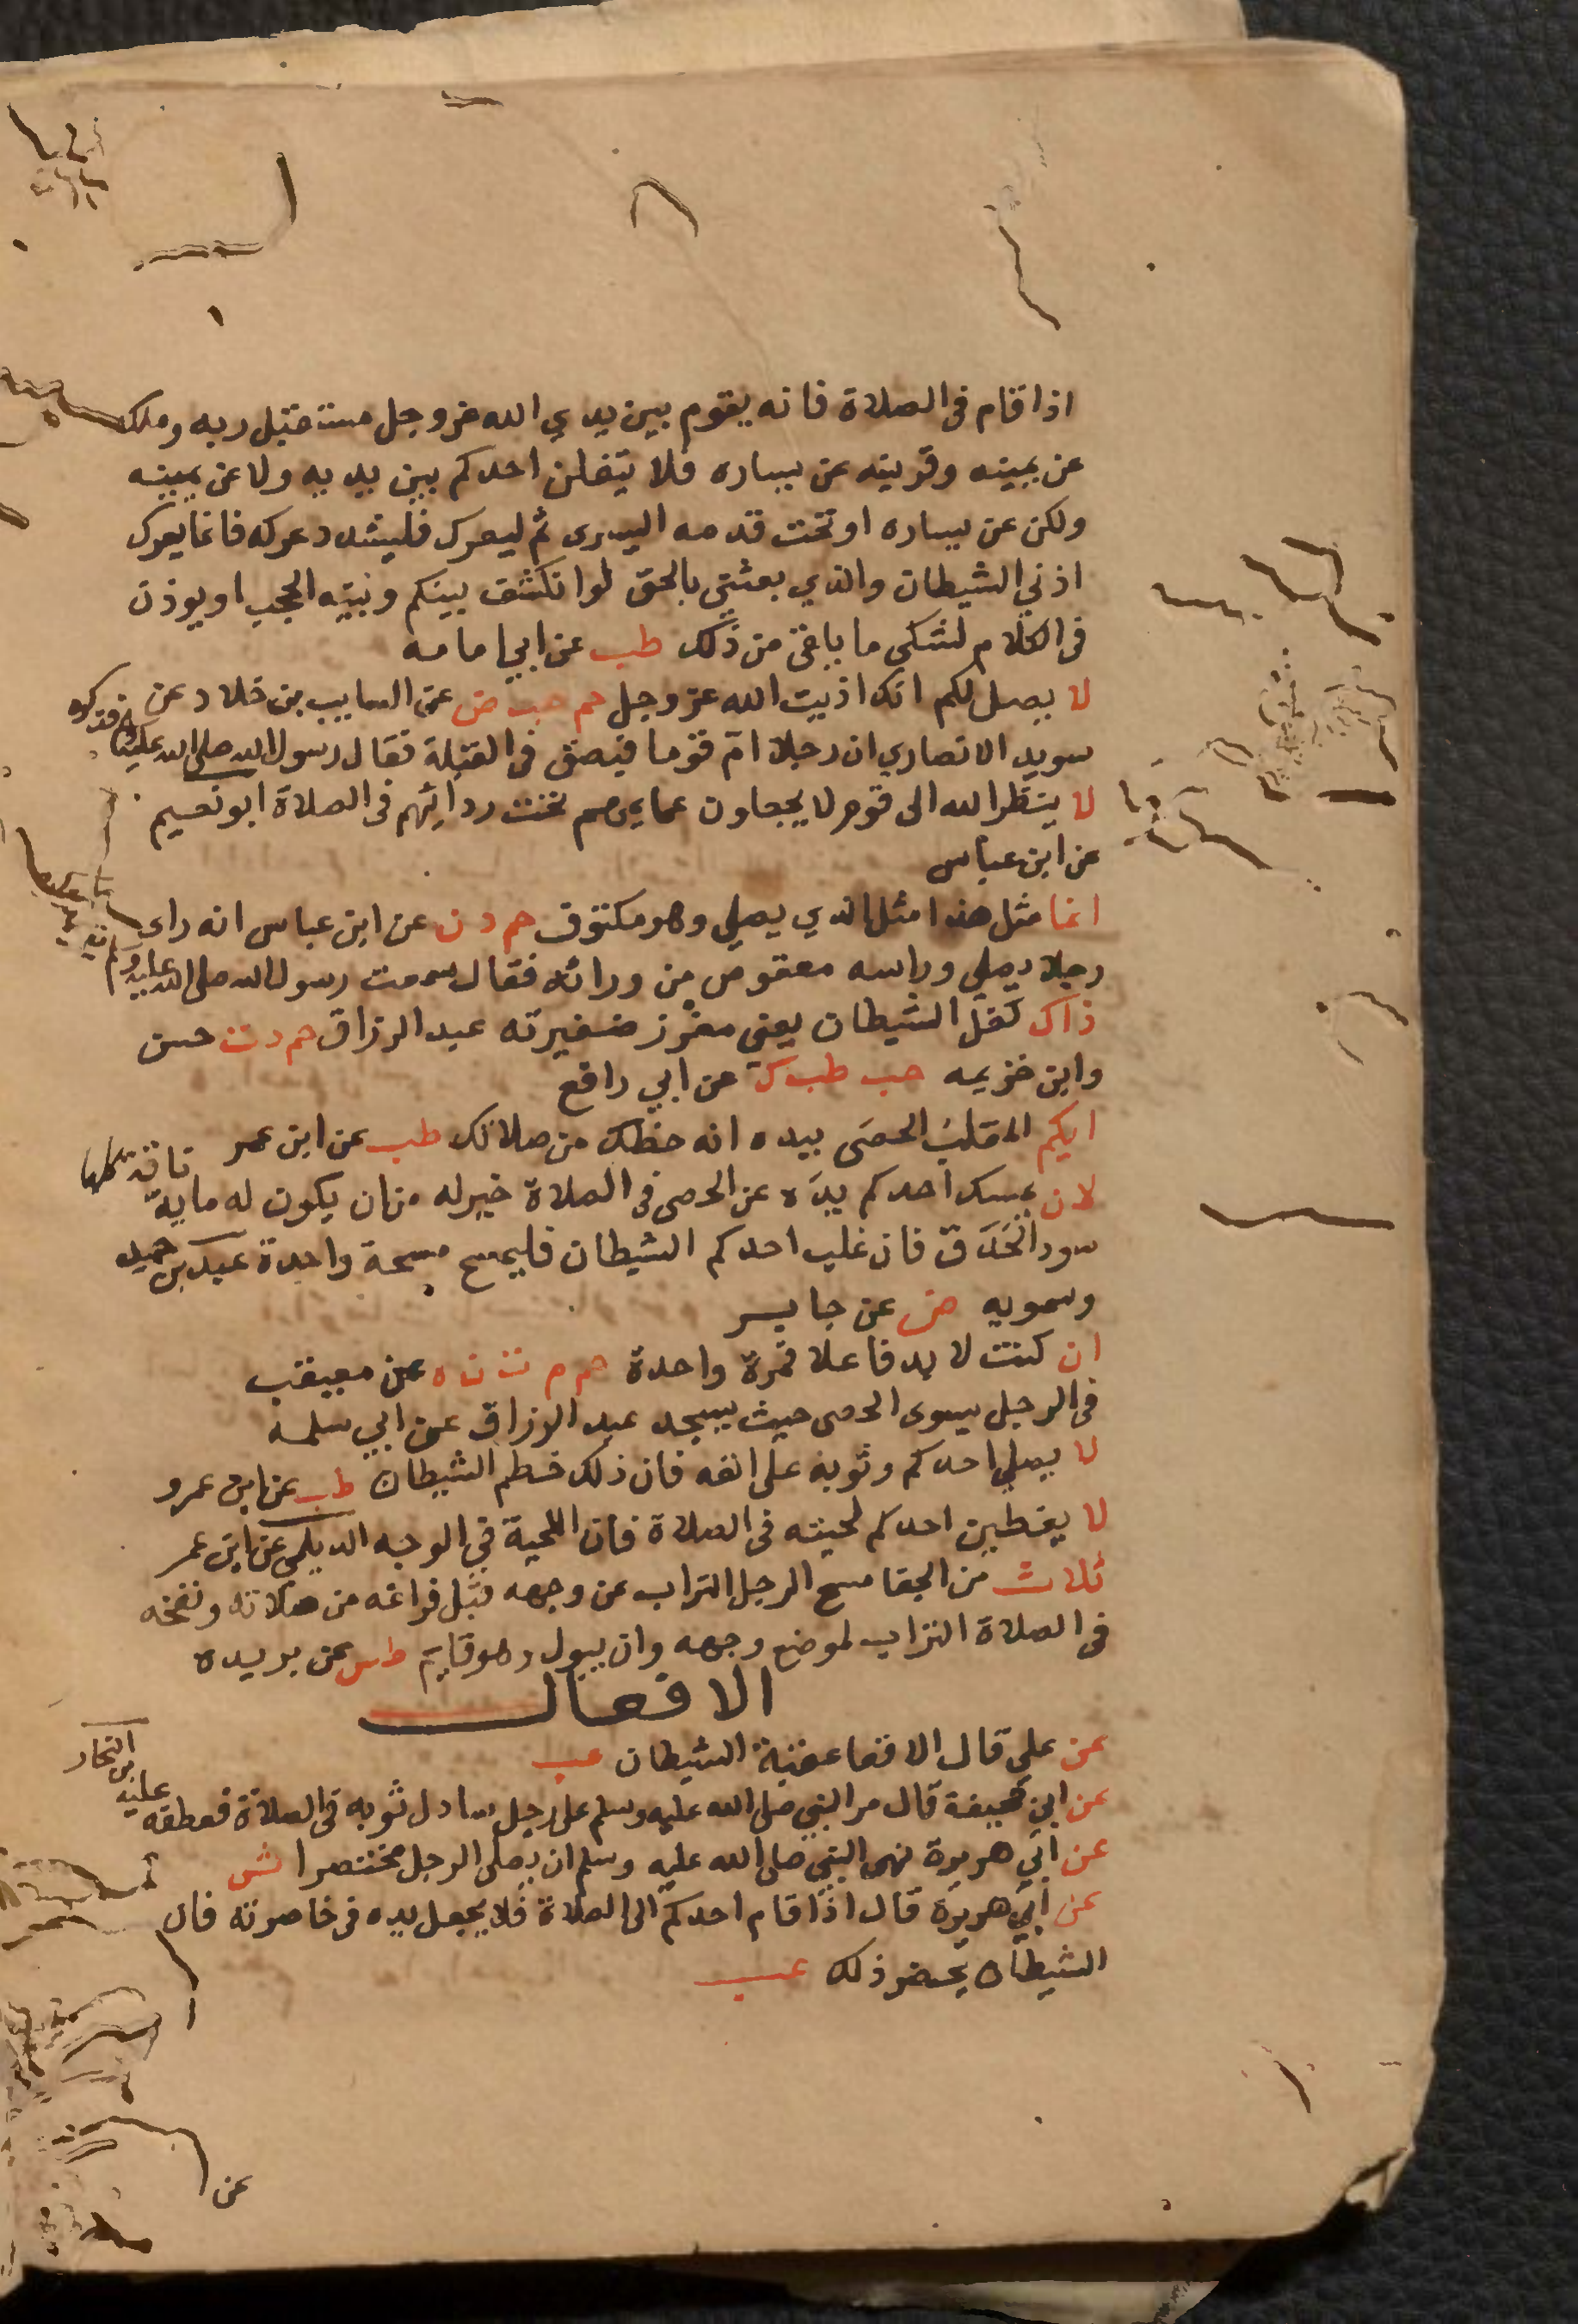 اذا قام فى الصلاة فانه يقوم بين يدي الله عز وجل مستقبل ربه وملك
عن يمينه وقرينه عن يساره فلا يتفلن احدكم بين يديه ولا عن يمينه
ولكن عن يساره او تحت قدمه اليسرى ثم ليعرك فليشدد عركه فانما يعرك
اذني الشيطان والذي بعثني بالحق لو انكشف بينكم وبينه الحجب او يوذن
فى الكلام لشكى ما يلقى من ذلك طب عن ابي امامه
لا يصل لكم انك اذيت الله عز وجل حم حب ض عن السايب بن خلاد عن
سويد الانصاري ان رجلا ام قوما فبصق فى القبلة فقال رسول الله صلى الله عليه وسلم فذكره
لا ينظر الله الى قوم لا يجعلون عمايمهم تحت ردائهم فى الصلاة ابو نعيم
عن ابن عباس
انما مثل هذا مثل الذي يصلي وهو مكتوف حم د ن عن ابن عباس انه راى
رجلا يصلي وراسه معقوص من ورائه فقال سمعت رسول الله صلى الله عليه وسلم
ذاك كفل الشيطان يعني مغرز ضفيرته عبد الرزاق حم د ت حسن
وابن خزيمه حب طب ك عن ابي رافع
ايكم المقلب الحصى بيده انه حظك من صلاتك طب عن ابن عمر
لان يمسك احدكم يده عن الحصى فى الصلاة خير له من ان يكون له ماية ناقة كلها
سود الحدق فان غلب احدكم الشيطان فليمسح مسحة واحدة عبد بن حميد
وسمويه ض عن جابر
ان كنت لا بد فاعلا فمرة واحدة حم م ت ن ه عن معيقب
فى الرجل يسوى الحصى حيث يسجد عبد الرزاق عن ابي سلمه
لا يصلي احدكم وثوبه على انفه فان ذلك خطم الشيطان طب عن ابن عمرو
لا يغطين احدكم لحيته فى الصلاة فان اللحية في الوجه الديلمي عن ابن عمر
ثلاث من الجفا مسح الرجل التراب عن وجهه قبل فراغه من صلاته ونفخه
فى الصلاة التراب لموضع وجهه وان يبول وهو قايم طس عن بريده
الافعال
عن علي قال الاقعا عقبة الشيطان عب
عن ابي جحيفة قال مر النبي صلى الله عليه وسلم على رجل سادل ثوبه فى الصلاة فعطفه عليه ابن النجار
عن ابي هريرة نهى النبي صلى الله عليه وسلم ان يصلى الرجل مختصرا ش
عن ابي هريرة قال اذا قام احدكم الى الصلاة فلا يجعل يده فى خاصرته فان
الشيطان يحضر ذلك عب
عن